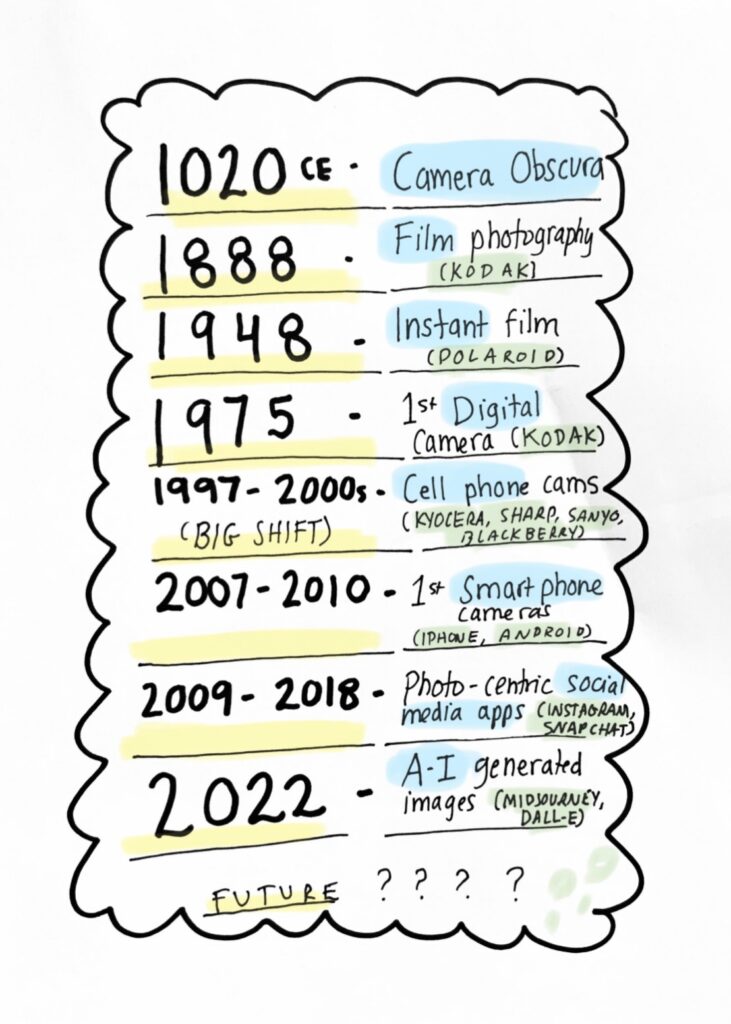 1020 CE - Camera Obscura
1888 - Film photography
(KODAK)
1948 - Instant film
(POLAROID)
1975 - 1st Digital
Camera (KODAK)
1997-2000s - Cell phone cams
(BIG SHIFT) (KYOCERA, SHARP, SANYO,
BLACKBERRY)
2007-2010 - 1st Smartphone
cameras
(IPHONE, ANDROID)
2009-2018 - Photo-centric social
media apps (INSTAGRAM,
SNAPCHAT)
2022 - A-I generated
images (MIDJOURNEY,
DALL-E)
FUTURE ? ? ? ?